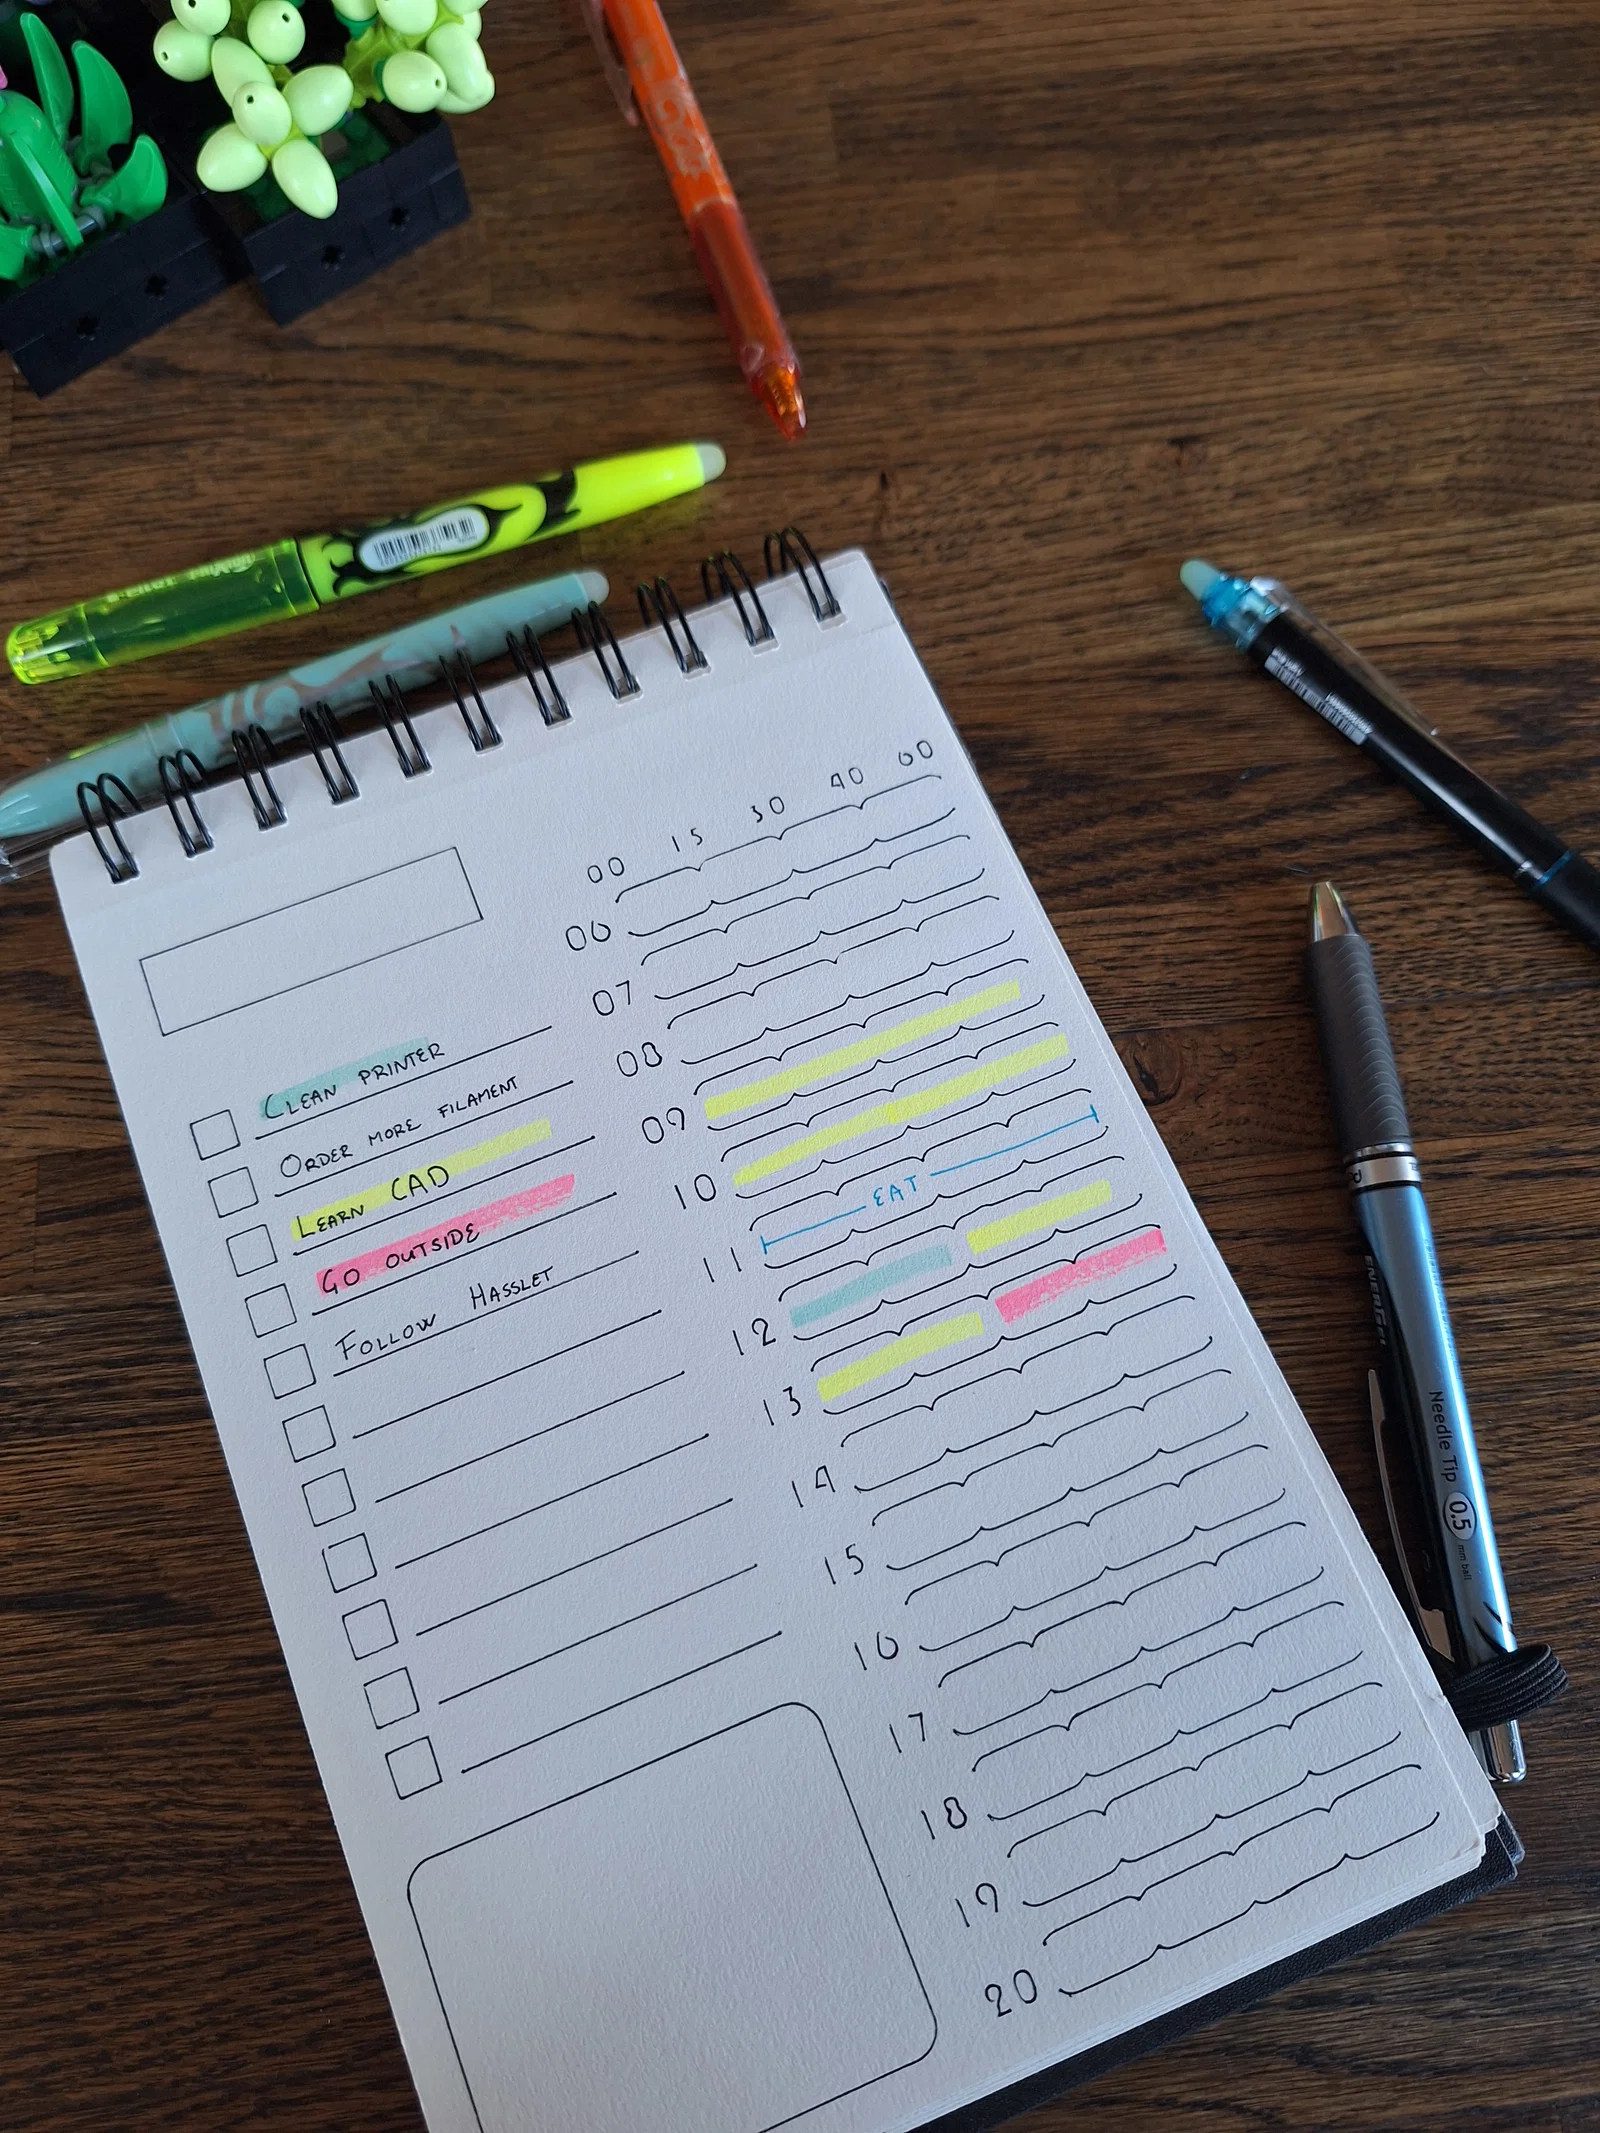 00 15 30 40 60
CLEAN PRINTER
ORDER MORE FILAMENT
LEARN CAD
GO OUTSIDE
FOLLOW HASSLET
06
07
08
09
10
11 EAT
12
13
14
15
16
17
18
19
20
PILOT FRIXION
ENERGEL
Needle Tip 0.5 mm ball